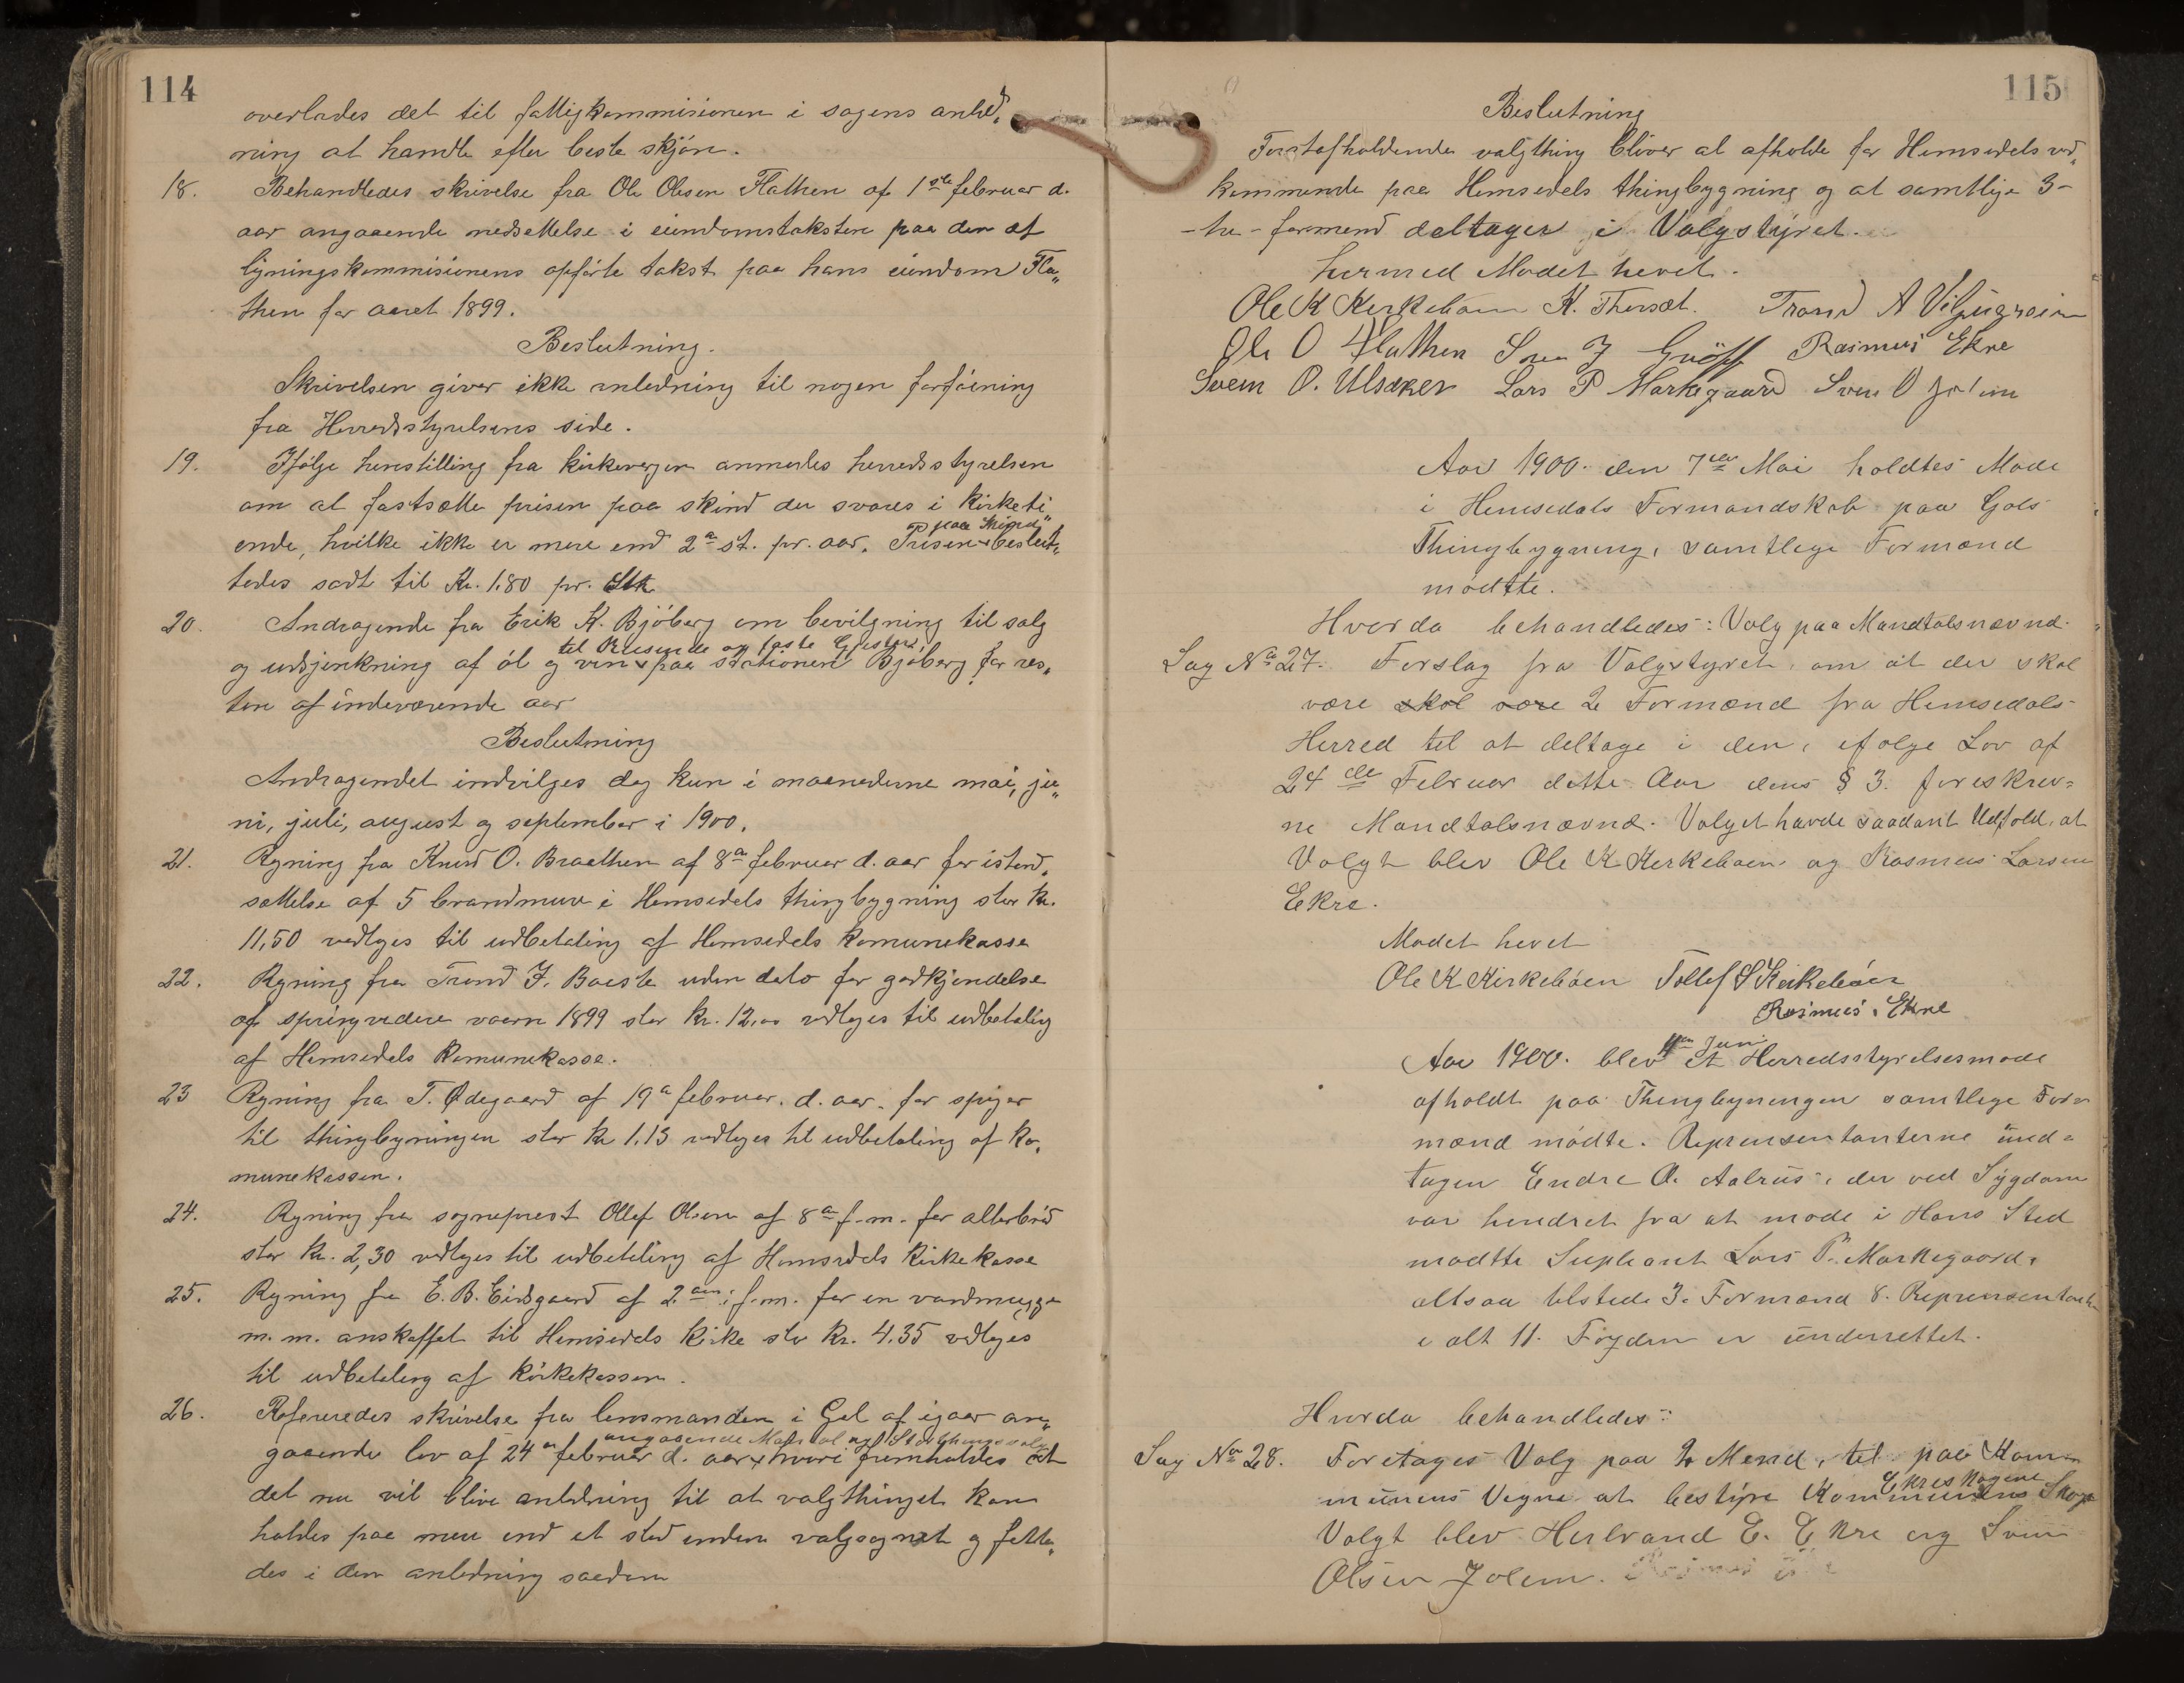 114
overlades det til fattigkommisionen i sagens anled„
ning at handle efter beste skjön.
18. Behandledes skrivelse fra Ole Olesen Flathen af 1ste februar d.
aar angaaende nedsettelse i eiendomstaksten paa den af
ligningskommisionens opförte takst paa hans eiendom Fla„
then for aaret 1899.
Beslutning.
Skrivelsen giver ikke anledning til nogen forföining
fra Herredsstyrelsens side.
19. Ifölge henstilling fra kirkevergen anmodes herredsstyrelsen
om at fastsætte prisen paa skind der svares i kirketi„
paa skind
ende, hvilke ikke er mere end 2a st. pr. aar. Prisen beslut„
tedes sadt til Kr. 1.80 pr. Stk.
20. Andragende fra Erik K. Bjöberg om bevilgning til salg
til Reisende og faste Gjester,
og udsjenkning af öl og vin paa stationen Bjöberg for res„
ten af indeværende aar
Beslutning
Andragendet indvilges dog kun i maanederne mai, ju„
ni, juli, august og september i 1900.
21. Regning fra Knud O. Braathen af 8de februar d. aar for istand„
sættelse af 5 brandmure i Hemsedals thingbygning stor kr.
11,50 vedtoges til udbetaling af Hemsedals komunekasse
22. Regning fra Trond J. Baeste uden dato for godkjendelse
af springvedere vaaren 1899 stor kr. 12,00 vedtoges til udbetaling
af Hemsedals komunekasse.
23 Regning fra T. Ödegaard af 19a februar. d. aar. for spiger
til thingbygningen stor kr 1.13 vedtoges til udbetaling af ko„
munekassen.
24. Regning fra sogneprest Ollef Olsen af 8de f. m. for alterbröd
stor kr. 2,30 vedtoges til udbetaling af Hemsedals kirkekasse
25. Regning fra E. B. Eidsgaard af 2den i f. m. for en vandmugge
m. m. anskaffet til Hemsedals kirke stor kr. 4.35 vedtoges
til udbetaling af kirkekassen.
26. Refereredes skrivelse fra lensmanden i Gol af igaar an„
angaaende Mantal og Storthingsvalg
gaaende lov af 24de februar d. aar hvori fremholdes at
det nu vil blive anledning til at valgthinget kan
holdes paa mere end et sted inden valgsognet og fatte„
des i den anledning saadan
115
Beslutning
Forstafholdende valgthing bliver at afholde for Hemsedals ved„
kommende paa Hemsedals thingbygning og at samtlige 3-
-tre- formend deltager i Valgstyret.
hermed Modet hevet.
Ole K Kirkebøen K. Thorsæt. Trond A Viljugrein
Ole O Flathen Sven J Grøff Rasmus Ekre
Svein O. Ulsaker Lars P Markegaard Sven O Jolun
Aar 1900. den 7de Mai holdtes Mode
i Hemsedals Formandskab paa Gols
Thingbygning, samtlege Formænd
mödtte.
Hvorda behandledes: Valg paa Mandtalsnævnd.
Sag No 27. Forslag fra Valgstyret, om at der skal
være skal være 2 Formænd fra Hemsedals
Herred tel at deltage i den, ifolge Lov af
24de Februar dette Aar dens § 3. foreskrev=
ne Mandtalsnævnd. Valget havde saadant Udfald, at
Valgt blev Ole K Kerkeboen og Rasmus Larsen
Ekre.
Modet hevet
Ole K Kirkebøen Tollef S Kirkebøen
Rasmus Ekre
Juni
Aar 1900. blev et Herredsstyrelsesmode
afholdt paa Thingbyningen samtlege For=
mænd mödte. Reprensentanterne und=
tagen Endre O. Aalrus, der ved Sygdom
var hendret fra at mode i Hans Sted
modtte Supleant Lars P. Markegaard,
altsaa telstede 3. Formænd 8. Reprensentant
i alt 11. Fogden er underrettet.
Hvorda behandledes:
Sag No 28. Foretages Valg paa 2 Mend, tel paa Kom=
Ekreskogene
munens Vegne at bestyre Kommunens Skoge
Valgt blev Herbrand E. Ekre og Svein
Olsen Jolem.